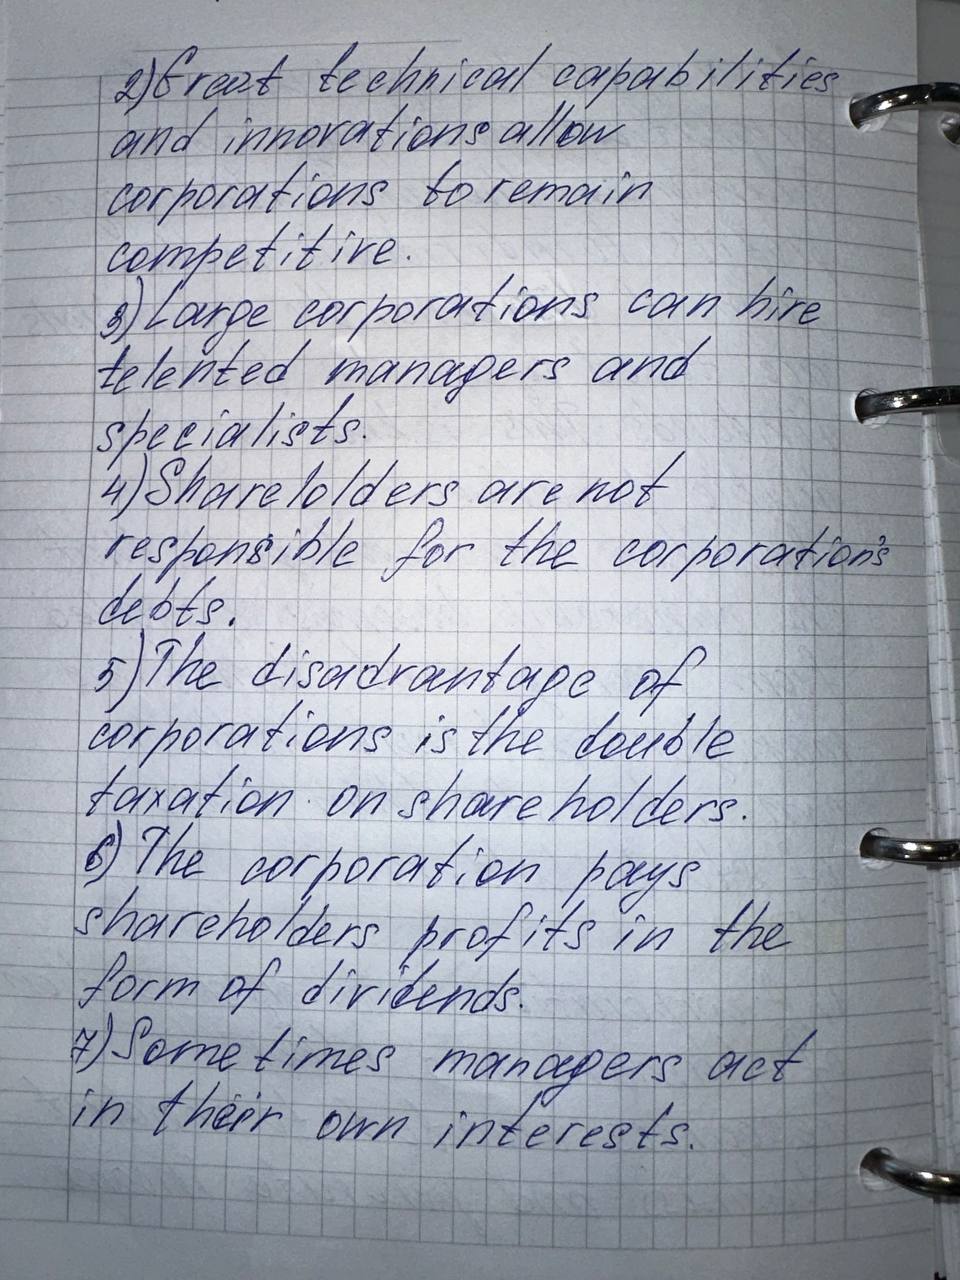 2) Great technical capabilities
and innovations allow
corporations to remain
competitive.
3) Large corporations can hire
telented managers and
specialists.
4) Sharelolders are not
responsible for the corporation's
debts.
5) The disadvantage of
corporations is the double
taxation on shareholders.
6) The corporation pays
shareholders profits in the
form of dividends.
7) Sometimes managers act
in their own interests.